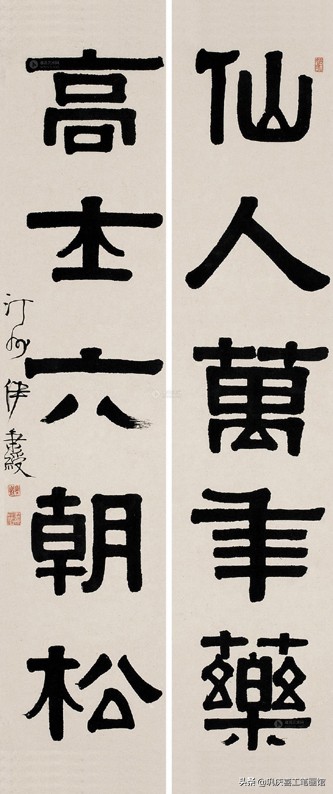 仙人萬年藥
高士六朝松
汀州伊秉綬
头条 @巩庆喜工笔画馆